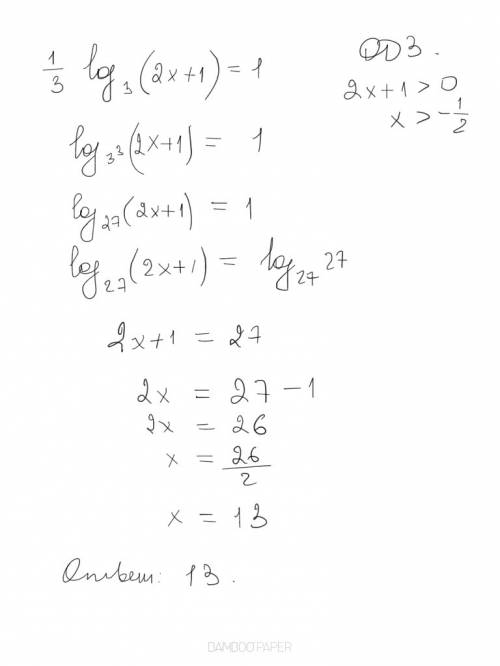 1/3 log₃(2x+1) = 1
ОДЗ.
2x+1 > 0
x > -1/2
log₃³(2x+1) = 1
log₂₇(2x+1) = 1
log₂₇(2x+1) = log₂₇27
2x+1 = 27
2x = 27 - 1
2x = 26
x = 26/2
x = 13
Ответ: 13.
BAMBOOPAPER